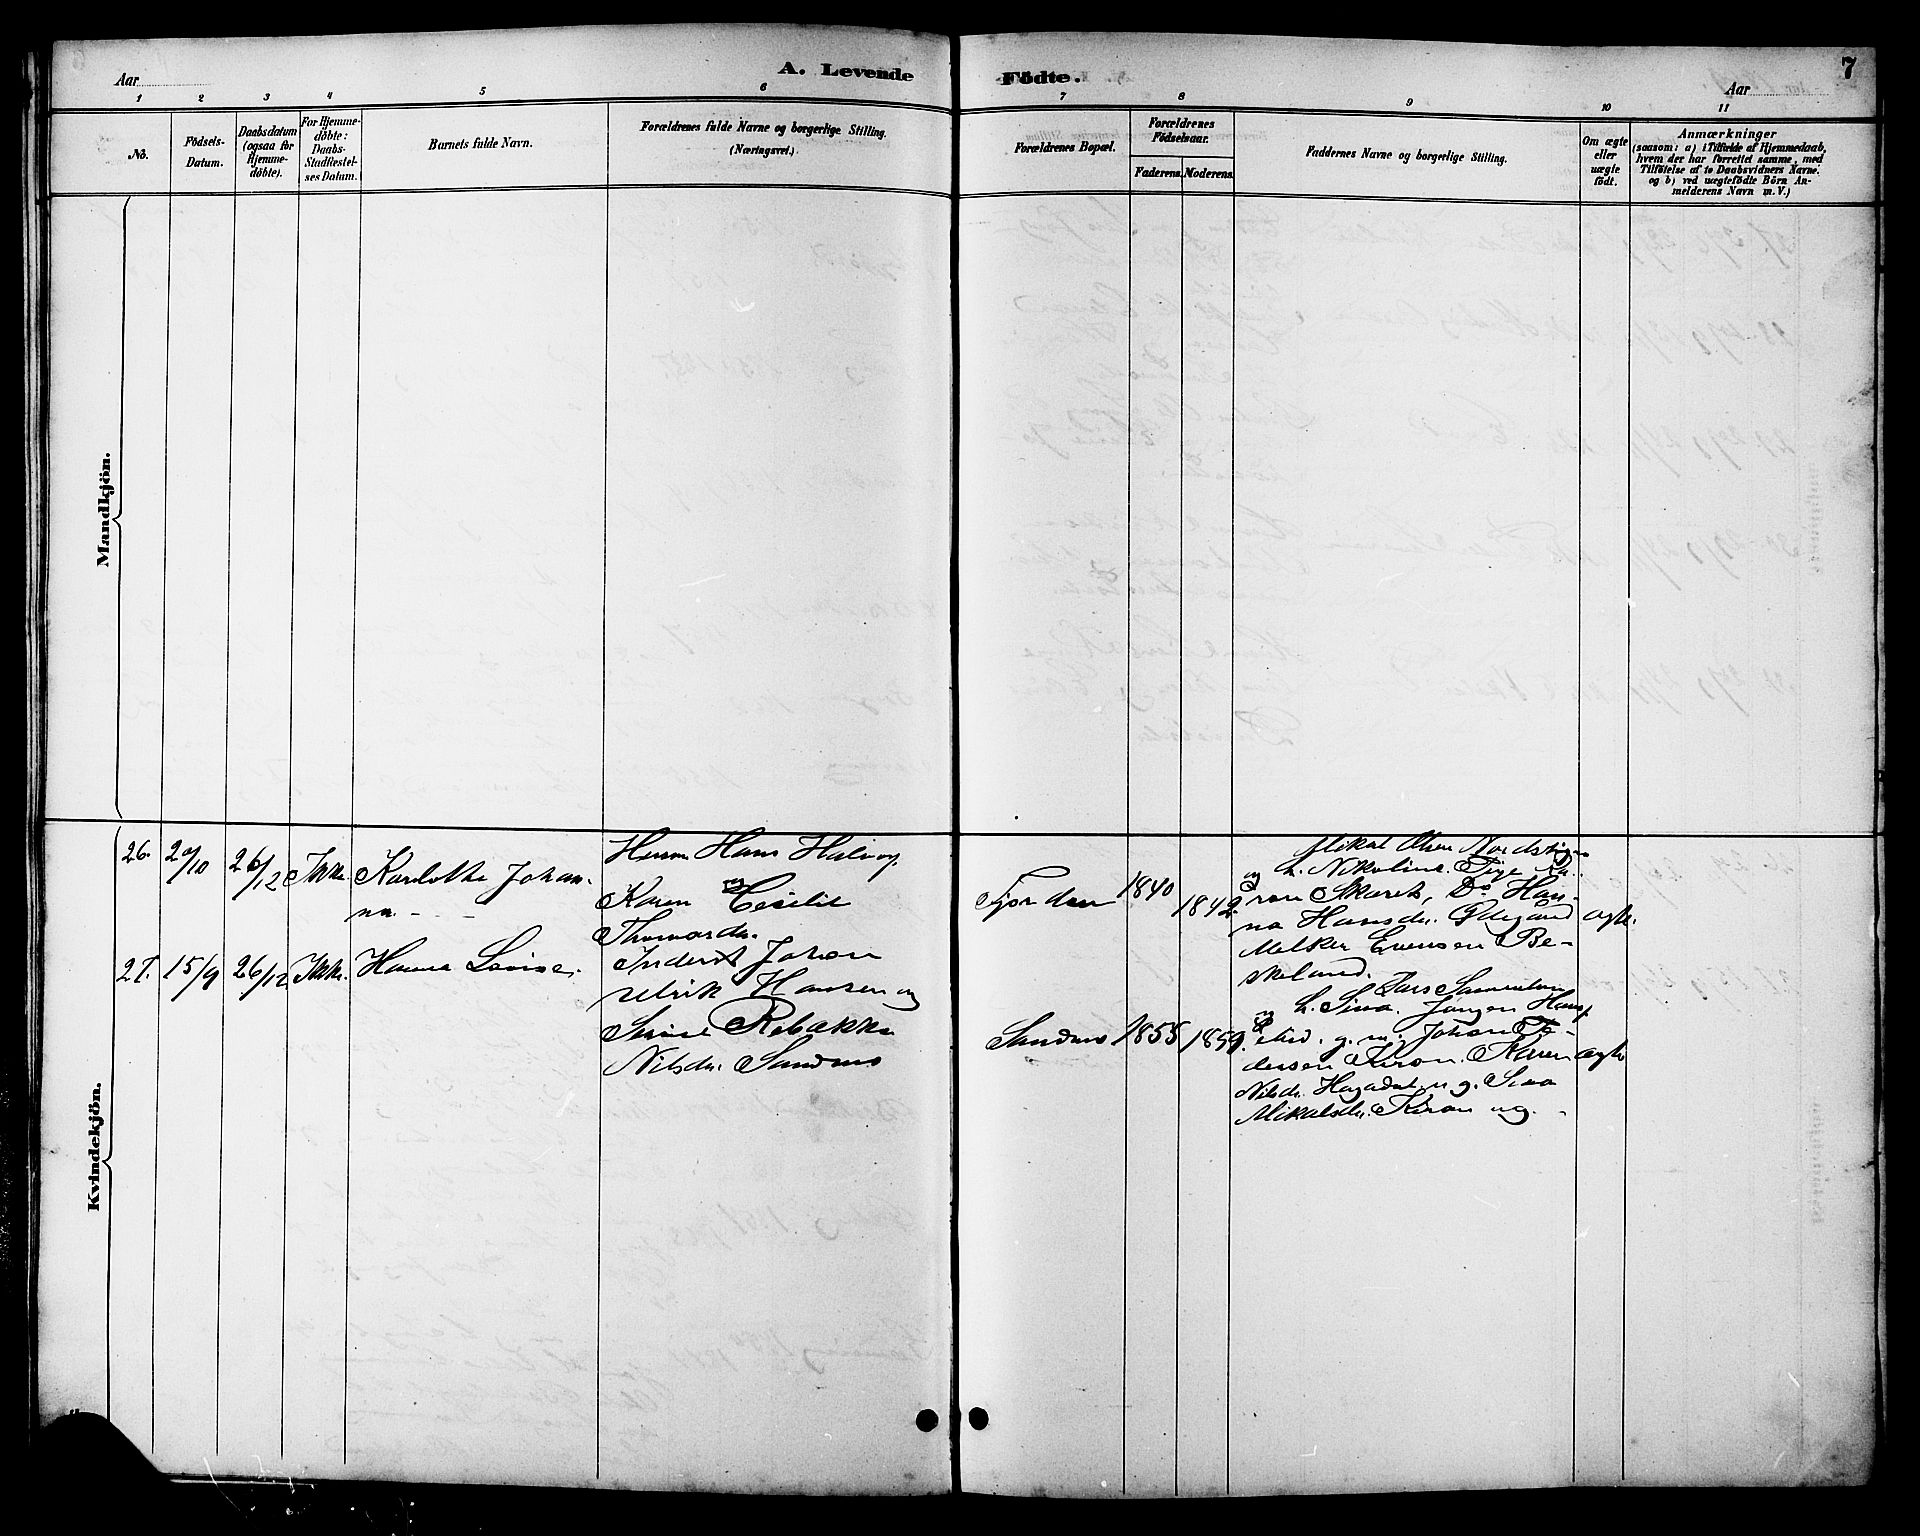 Aar
A. Levende
Födte.
7
Aar
1
2
3
4
5
6
7
8
9
10
11
No.
Födsels-
Datum.
Daabsdatum
(ogsaa for
Hjemme-
døbte).
For Hjemme-
døbte:
Daabs-
Stadfæstel-
ses Datum.
Barnets fulde Navn.
Forældrenes fulde Navne og borgerlige Stilling.
(Næringsvei.)
Forældrenes Bopæl.
Forældrenes
Födselsaar.
Faderens.
Moderens.
Faddernes Navne og borgerlige Stilling.
Om ægte
eller
uægte
født.
Anmærkninger
(saasom: a) i Tilfælde af Hjemmedaab,
hvem der har forrettet samme, med
Tilföielse af to Daabsvidners Navne.
og b) ved uægtefödte Börn An-
melderens Navn m. V.)
Mandkjön.
Kvindekjön.
26.
20/10
26/12
Ikke
Karlotte Johan-
na
Hans Halv og
Karen Cecilie
Thomasdr.
Fjorden
1840
1842.
Mikal Olsen Nordstig
og h. Nikoline Ka-
ren Skaret, Do Han-
na Hansdr. Ødegaard
Melker Evensen Be-
skeland.
ægte.
27.
15/9
26/12
Ikke.
Hanna Lovise.
Inderst Johan
Ulrik Hansen og
Rebakka
Nilsdr. Sandmo
Sandmo
1855
1859.
Lars
og h. Sina. Jørgen Hans
g. m. Johan Pe-
dersen Karen
Nilsdr. g. Sina
Mikalsdr. ug.
ægte